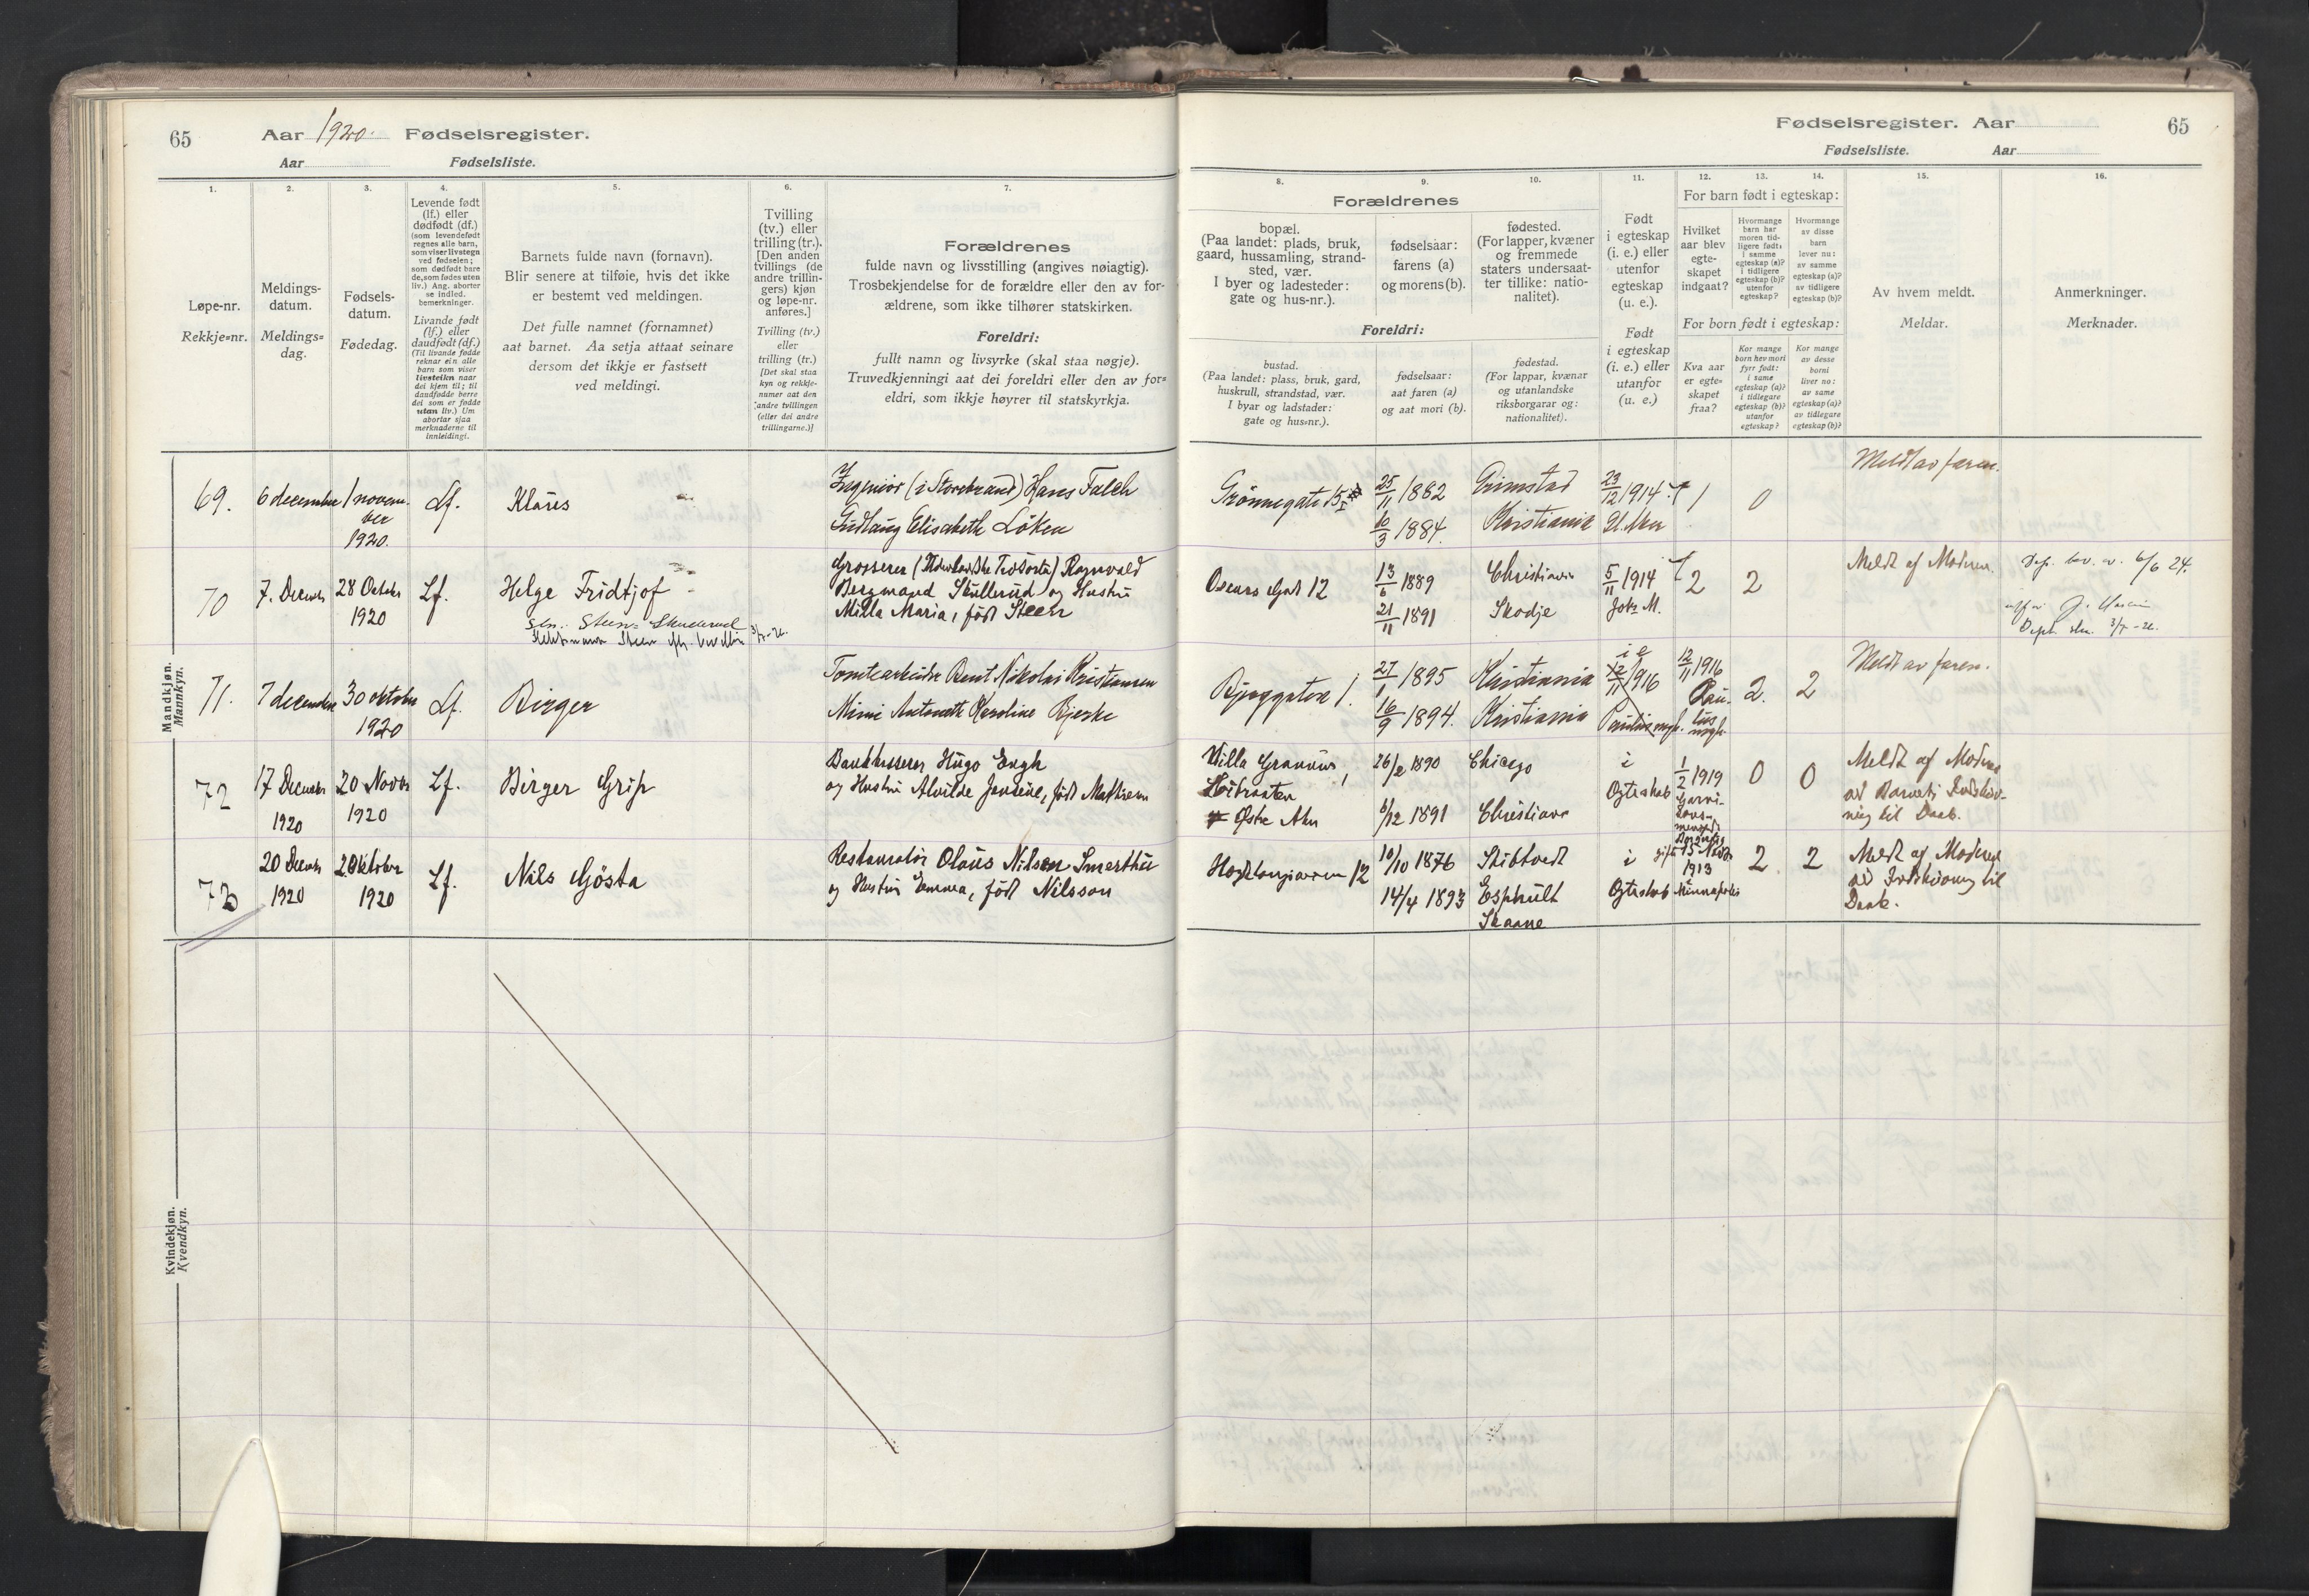 65
Aar 1920. Fødselsregister.
Aar Fødselsliste.
1.
2.
3.
4.
5.
6.
7.
Løpe-nr.
Rekkje=nr.
Meldings-
datum.
Meldings=
dag.
Fødsels-
datum.
Fødedag.
Levende født
(lf.) eller
dødfødt (df.)
(som levendefødt
regnes alle barn,
som viser livstegn
ved fødselen;
som dødfødt bare
de, som fødes uten
liv.) Ang. aborter
se indled.
bemerkninger.
Livande født
(lf.) eller
daudfødt (df.)
(Til livande fødde
reknar ein alle
barn som viser
livsteikn naar
dei kjem til; til
daudfødde berre
dei som er fødde
utan liv.) Um
abortar sjaa
merknaderne til
innleidingi.
Barnets fulde navn (fornavn).
Blir senere at tilføie, hvis det ikke
er bestemt ved meldingen.
Det fulle namnet (fornamnet)
aat barnet. Aa setja attaat seinare
dersom det ikkje er fastsett
ved meldingi.
Tvilling
(tv.) eller
trilling (tr.).
[Den anden
tvillings (de
andre trillin-
gers) kjøn
og løpe-nr.
anføres.]
Tvilling (tv.)
eller
trilling (tr.)
[Det skal staa
kyn og rekkje-
numer aat den
andre tvillingen
(eller dei andre
trillingarne.)]
Forældrenes
fulde navn og livsstilling (angives nøiagtig).
Trosbekjendelse for de forældre eller den av for-
ældrene, som ikke tilhører statskirken.
Foreldri:
fullt namn og livsyrke (skal staa nøgje).
Truvedkjenningi aat dei foreldri eller den av for=
eldri, som ikkje høyrer til statskyrkja.
Fødselsregister. Aar 65
Fødselsliste. Aar
8.
9.
10.
11.
12.
13.
14.
15.
16.
Forældrenes
bopæl.
(Paa landet: plads, bruk,
gaard, hussamling, strand-
sted, vær.
I byer og ladesteder:
gate og hus-nr.).
fødselsaar:
farens (a)
og morens (b).
fødested.
(For lapper, kvæner
og fremmede
staters undersaat-
ter tillike: natio-
nalitet).
Foreldri:
bustad.
(Paa landet: plass, bruk, gard,
huskrull, strandstad, vær.
I byar og ladstader:
gate og hus=nr.).
fødselsaar:
aat faren (a)
og aat mori (b).
fødestad.
(For lappar, kvænar
og utanlandske
riksborgarar og:
nationalitet).
Født
i egteskap
(i. e.) eller
utenfor
egteskap
(u. e.).
Født
i egteskap
(i. e.) eller
utanfor
egteskap
(u. e.)
For barn født i egteskap:
Hvilket
aar blev
egte-
skapet
indgaat?
Hvormange
barn har
moren tid-
ligere født:
i samme
egteskap (a)?
i tidligere
egteskap (b)?
utenfor
egteskap?
Hvormange
av disse
barn
lever nu:
av samme
egteskap (a)?
av tidligere
egteskap (b)?
For born født i egteskap:
Kva aar
er egte-
skapet
fraa?
Kor mange
born hev mori
fyrr født:
i same
egteskap (a)?
i tidlegare
egteskap (b)?
utanfor
egteskap?
Kor mange
av desse
borni
liver no:
av same
egteskap (a)?
av tidlegare
egteskap (b)?
Av hvem meldt.
Meldar.
Anmerkninger.
Merknader.
Mandkjøn.
Mannkyn.
69. 6 december 1 novem-
ber
1920. Lf. Klaus
Ingeniør (i Storebrand) Hans Falch
Gudlaug Elisabeth Løken
Grønnegate 15 25/11 1882 Grimstad 23/12 1914 1 0 Meldt av faren.
10/3 1884. Kristiania
70 7. Decembr 28 October
1920 Lf. Helge Fridtjof
Steen-Skullerud
Grosserer Ragnvald
Bergmand Skullerud og Hustru
Milla Maria, født Steen
Oscars Gad 12 13/6 1889 Christiania 5/11 1914 2 2 Meldt af Moderen. 6/6 24.
21/11 1891 Skodje Joh. M.
71. 7 december 30 oktober
1920 Lf. Birger
Tomtearbeider Bent Nikolai Kristiansen
Mimi Antonette Karoline Bjerke
Bjerggaten 1. 27/1 1895 Kristiania i e 12/11 1916 12/11 1916 2. 2 Meldt av faren.
16/9 1894. Kristiania
72 17 Decembr
1920 20 Novbr
1920 Lf. Birger Grip
Bankkasserer Hugo Engh
og Hustru Alvilde Jensine, født Mathisen
Villa Granum
Høibraaten
Østre Aker
26/2 1890 Chicago i
Egteskab 1/2 1919 0 0 Meldt af Moderen
ved Barnets Indskriv-
ning til Daab.
6/12 1891 Christiania
73 20 Decbr
1920 2 Oktober
1920 Lf. Nils Gösta
Restauratør Olaus Nilsen Smerthu
og Hustru Emma, født Nilsson
10/10 1876 i
Egteskab gift 15 Novbr
1913
Minneapolis 2. 2 Meldt af Moderen
ved Indskrivning til
Daab.
14/4 1893 Esphult
Skaane
Kvindekjøn.
Kvendkyn.